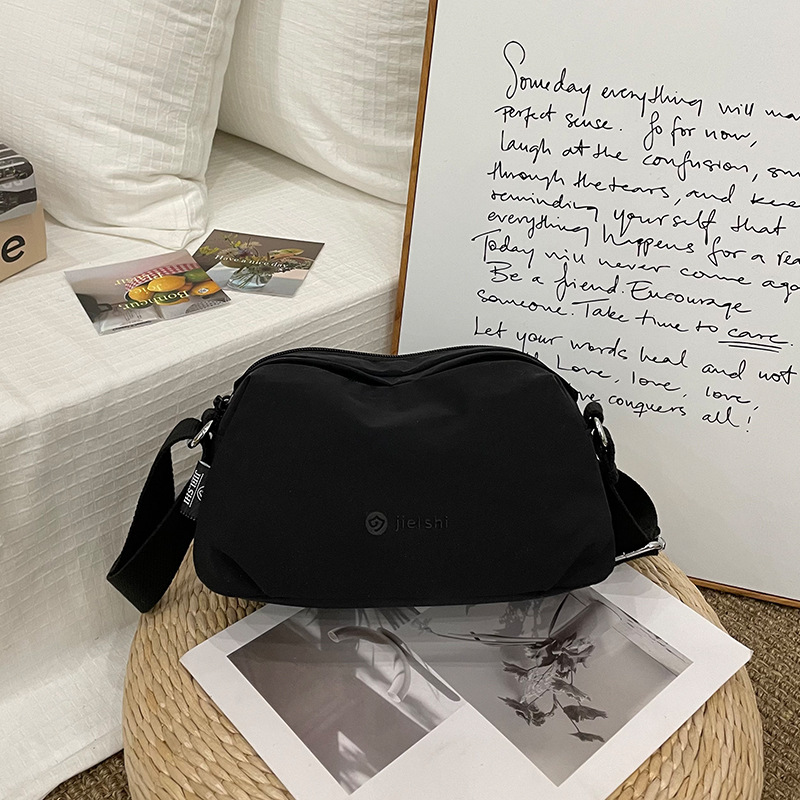 Someday everything will ma
perfect sense. So for now,
laugh at the confusion, sm
through the tears, and keep
reminding yourself that
everything happens for a rea
Today will never come aga
Be a friend. Encourage
someone. Take time to care.
Let your words heal and not
Love, love, love,
ve conquers all!
Have a nice day
Plaisir
Bonheur
e
jieishi